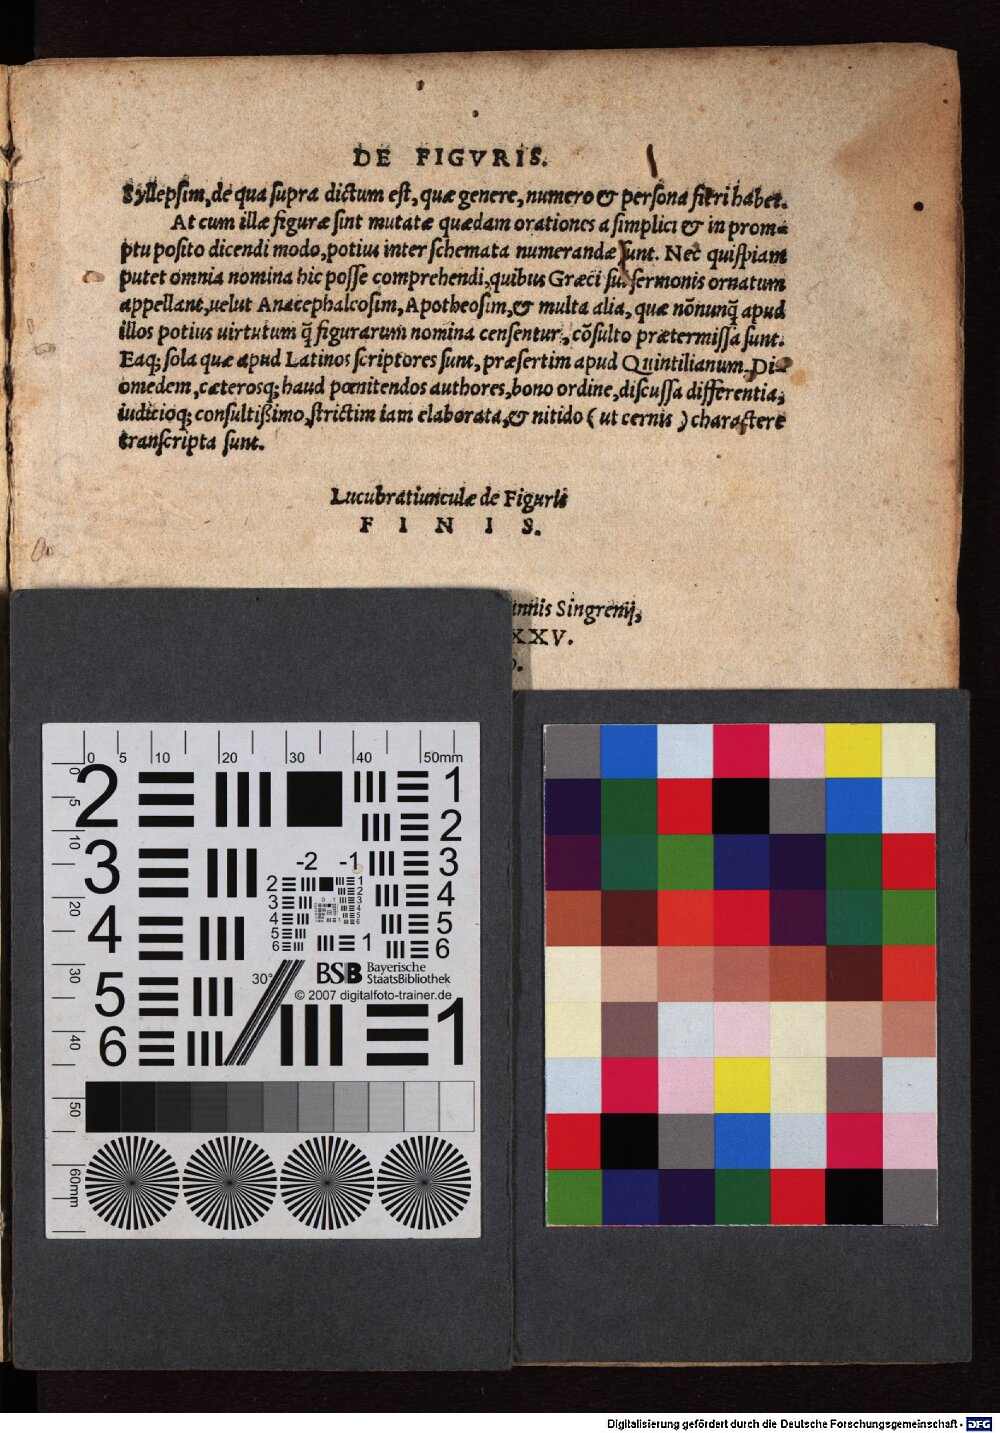 DE FIGVRIS.
Syllepsim, de qua supra dictum est, quæ genere, numero & persona fieri habet.
At cum illæ figuræ sint mutatæ quædam orationes a simplici & in prom=
ptu posito dicendi modo, potius inter schemata numerandæ sunt. Nec quispiam
putet omnia nomina hic posse comprehendi, quibus Græci sui sermonis ornatum
appellant, uelut Anacephalæosim, Apotheosim, & multa alia, quæ nōnunq̃ apud
illos potius uirtutum q̃ figurarum nomina censentur, cōsulto prætermissa sunt.
Eaq; sola quæ apud Latinos scriptores sunt, præsertim apud Quintilianum. Di=
omedem, cæterosq; haud pœnitendos authores, bono ordine, discussa differentia,
iudicioq; consultißimo, strictim iam elaborata, & nitido ( ut cernis ) charactere
transcripta sunt.
Lucubratiunculæ de Figuris
F I N I S.
nnis Singrenij,
XXV.
0 5 10 20 30 40 50mm
0 5 10 20 30 40 50 60mm
2 1
2
3 -2 -1 3
4 4
5 5
6 6
2 1
3 2
4 3
5 4
6 1
30°
BSB Bayerische
StaatsBibliothek
© 2007 digitalfoto-trainer.de
1
Digitalisierung gefördert durch die Deutsche Forschungsgemeinschaft - DFG